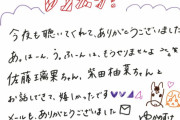 今夜も聴いてくれて、ありがとうございました
あ。はーん。う。ふーん。は、もうやりませんよ
佐藤璃果ちゃん、柴田柚菜ちゃんと
お話しできて、嬉しかったです
メールも、ありがとうございました